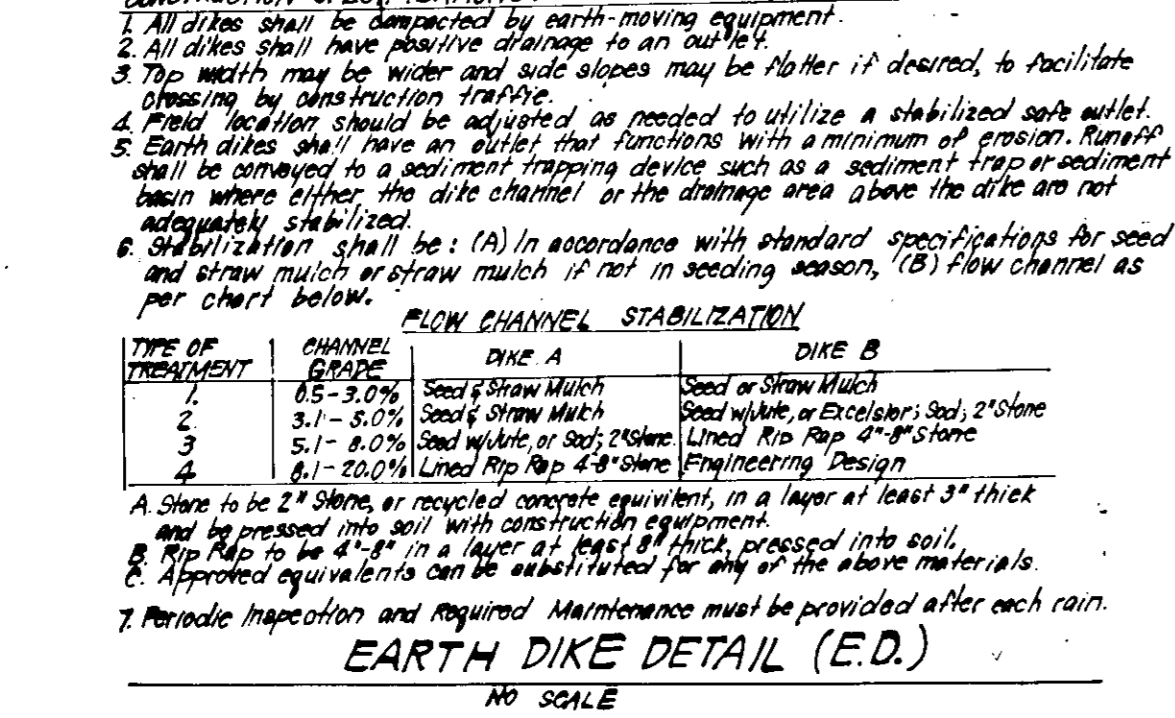 CONSTRUCTION SPECIFICATIONS
1. All dikes shall be compacted by earth-moving equipment.
2. All dikes shall have positive drainage to an outlet.
3. Top width may be wider and side slopes may be flatter if desired, to facilitate
crossing by construction traffic.
4. Field location should be adjusted as needed to utilize a stabilized safe outlet.
5. Earth dikes shall have an outlet that functions with a minimum of erosion. Runoff
shall be conveyed to a sediment trapping device such as a sediment trap or sediment
basin where either the dike channel or the drainage area above the dike are not
adequately stabilized.
6. Stabilization shall be: (A) In accordance with standard specifications for seed
and straw mulch or straw mulch if not in seeding season, (B) flow channel as
per chart below.
FLOW CHANNEL STABILIZATION
TYPE OF TREATMENT | CHANNEL GRADE | DIKE A | DIKE B
1. | 0.5-3.0% | Seed & Straw Mulch | Seed or Straw Mulch
2 | 3.1-5.0% | Seed & Straw Mulch | Seed w/Jute, or Excelsior; Sod; 2" Stone
3 | 5.1-8.0% | Seed w/Jute, or Sod; 2" Stone | Lined Rip Rap 4"-8" Stone
4 | 8.1-20.0% | Lined Rip Rap 4-8" Stone | Engineering Design
A. Stone to be 2" Stone, or recycled concrete equivilent, in a layer at least 3" thick
and be pressed into soil with construction equipment.
B. Rip Rap to be 4"-8" in a layer at least 8" thick, pressed into soil.
C. Approved equivalents can be substituted for any of the above materials.
7. Periodic Inspection and Required Maintenance must be provided after each rain.
EARTH DIKE DETAIL (E.D.)
NO SCALE